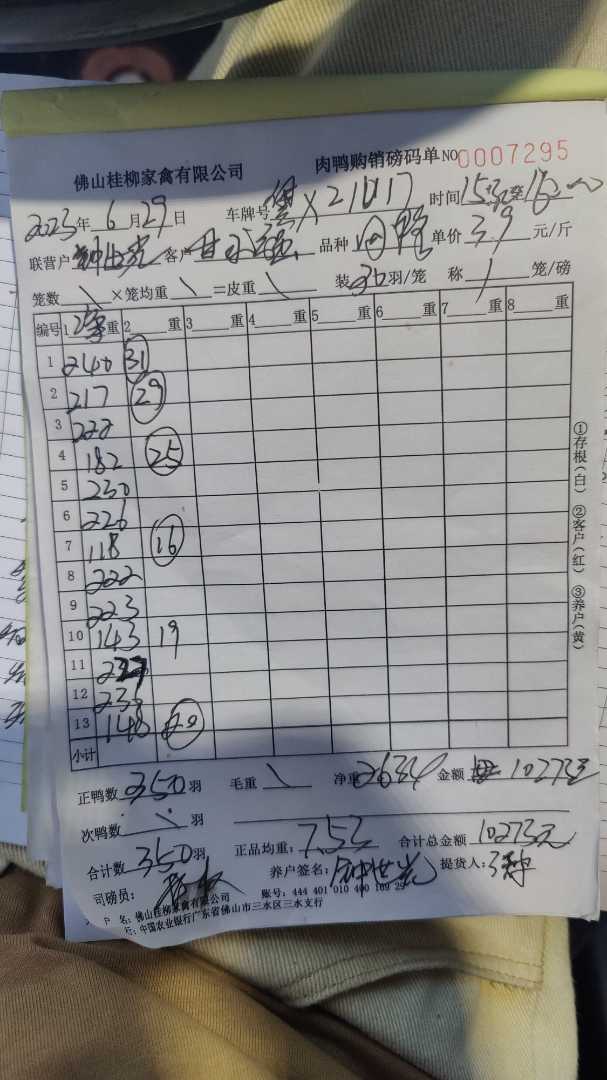 佛山桂柳家禽有限公司 肉鸭购销磅码单 NO 0007295
2023年 6月 29日 车牌号 X21017 时间
联营户 客户 品种 单价 3.9 元/斤
笼数 \ ×笼均重 \ =皮重 \ 装 30 羽/笼 称 1 笼/磅
编号 1 重 2 重 3 重 4 重 5 重 6 重 7 重 8 重
1 240 31
2 217 29
3 222
4 182 25
5 230
6 226
7 118 16
8 222
9 223
10 143 19
11
12
13 148 20
小计
①存根(白) ②客户(红) ③养户(黄)
正鸭数 350 羽 毛重 \ 净重 2634 金额 10273元
次鸭数 \ 羽
合计数 350 羽 正品均重: 7.53 合计总金额 10273元
司磅员: 养户签名: 提货人:
户 名: 佛山桂柳家禽有限公司 账号: 444 401 010 400 169 29
行: 中国农业银行广东省佛山市三水区三水支行